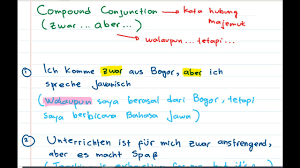 Compound Conjunction → kata hubung
(zwar ... aber ...) majemuk
→ walaupun ... tetapi ...
1 Ich komme zwar aus Bogor, aber ich
spreche Javanisch
(walaupun saya berasal dari Bogor, tetapi
saya berbicara Bahasa Jawa)
2 Unterrichten ist für mich zwar anstrengend,
aber es macht Spaß